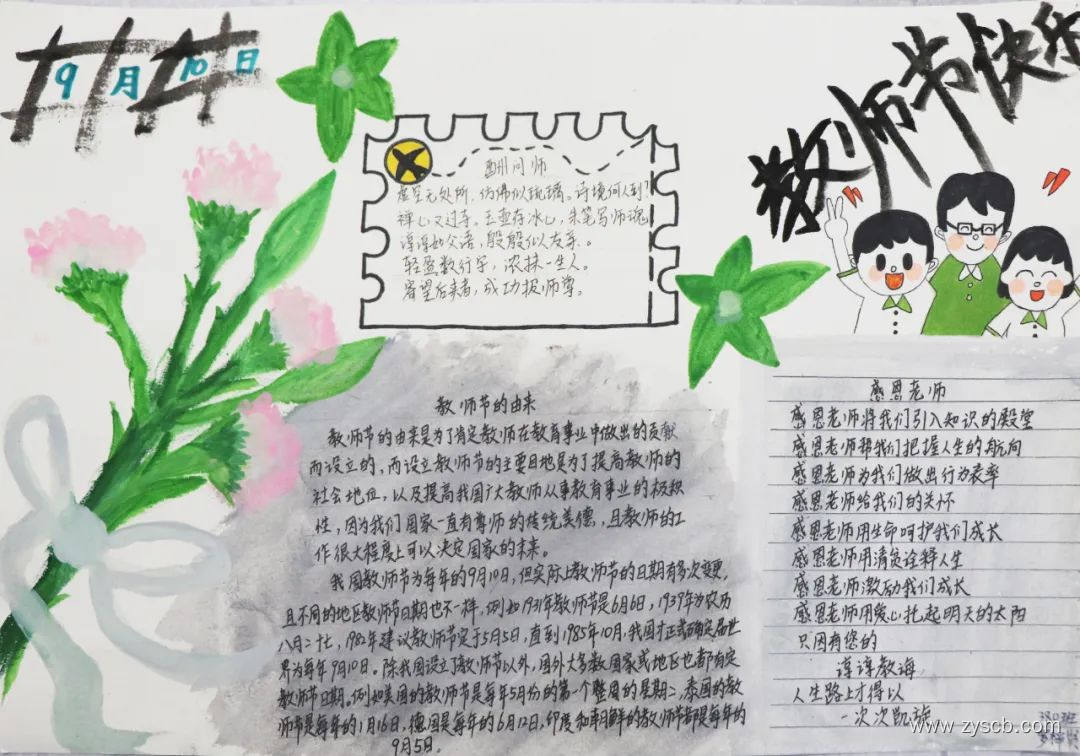 9月10日
教师节快乐
酬问师
虚空无处所,仿佛似琉璃。诗境何人到?
禅心又过寺。玉壶存冰心,朱笔写师魂
谆谆如父语,殷殷似友亲。
轻盈数行字,浓抹一生人。
寄望后来者,成功报师尊。
教师节的由来
教师节的由来是为了肯定教师在教育事业中做出的贡献
而设立的,而设立教师节的主要目地是为了提高教师的
社会地位,以及提高我国广大教师从事教育事业的积极
性,因为我们国家一直有尊师的传统美德,且教师的工
作很大程度上可以决定国家的未来。
我国教师节为每年的9月10日,但实际上教师节的日期有多次变更,
且不同的地区教师节日期也不一样,例如1931年教师节是6月6日,1939年为农历
八月二十七,1982年建议教师节定于5月5日,直到1985年10月,我国才正式确定
为每年9月10日。除我国设立了教师节以外,国外大多数国家或地区也都有定
教师节日期。例如美国的教师节是每年5月份的第一个整周的星期二,泰国的教
师节是每年的1月16日,德国是每年的6月12日,印度和朝鲜的教师节都是每年的
9月5日。
感恩老师
感恩老师将我们引入知识的殿堂
感恩老师帮我们把握人生的航向
感恩老师为我们做出行为表率
感恩老师给我们的关怀
感恩老师用生命呵护我们成长
感恩老师用清贫诠释人生
感恩老师激励我们成长
感恩老师用爱心托起明天的太阳
只因有您的
谆谆教诲
人生路上才得以
一次次凯旋
www.zyscb.com